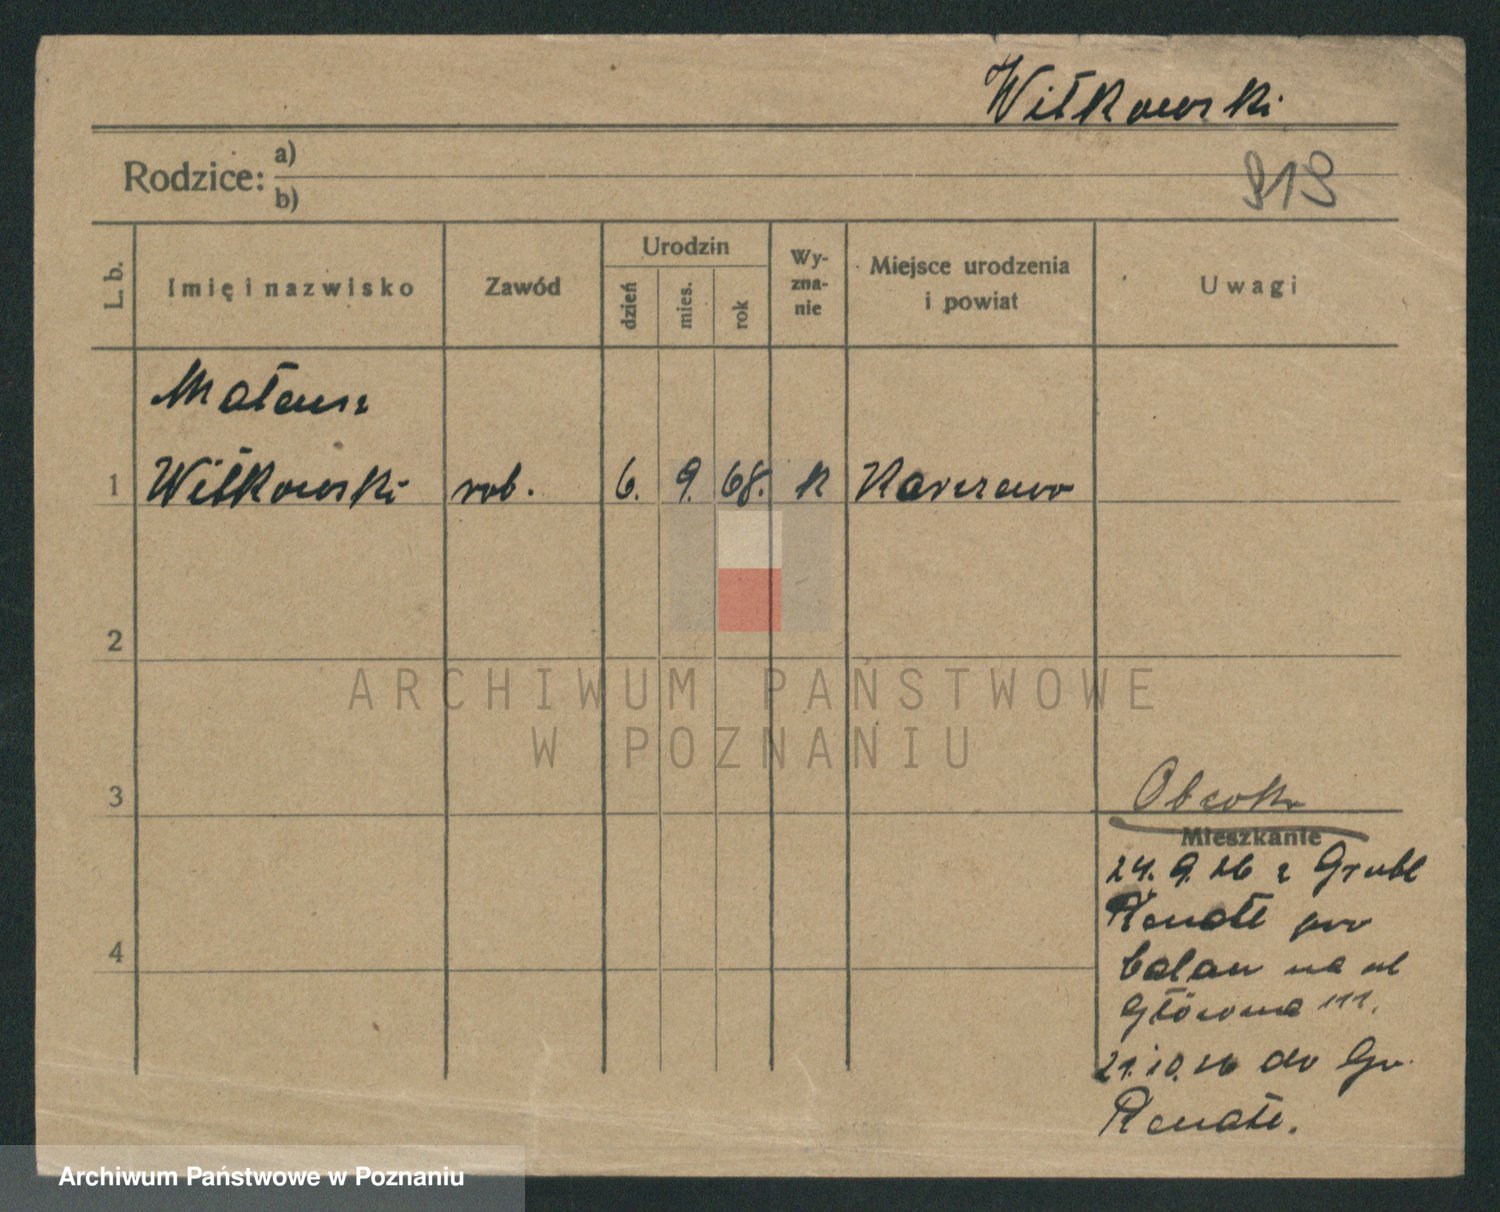 Witkowski
Rodzice: a)
b)
918
L. b.
Imię i nazwisko
Zawód
Urodzin
dzień
mies.
rok
Wy-
zna-
nie
Miejsce urodzenia
i powiat
Uwagi
Mateusz
1 Witkowski rob. 6. 9. 68. k Karczewo
2
ARCHIWUM PAŃSTWOWE
W POZNANIU
3
Mieszkanie
24. 9. 26 z
na ul
Główna 111.
21. 10. 26 do Gr.
4
Archiwum Państwowe w Poznaniu